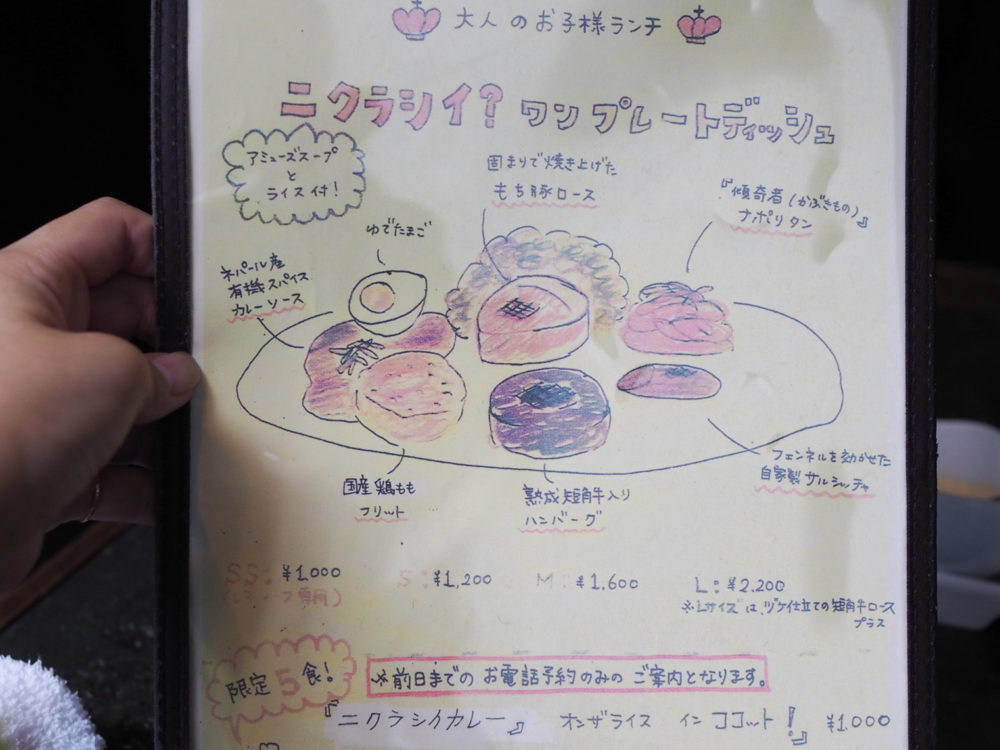 大人のお子様ランチ
ニクラシイ？ワンプレートディッシュ
アミューズスープ
と
ライス付！
固まりで焼き上げた
もち豚ロース
『傾奇者(かぶきもの)
ナポリタン』
ゆでたまご
ネパール産
有機スパイス
カレーソース
フェンネルを効かせた
自家製サルシッチャ
国産鶏もも
フリット
熟成短角牛入り
ハンバーグ
SS:¥1,000
S:¥1,200
M:¥1,600
L:¥2,200
※Lサイズは、ヅケ仕立ての短角牛ロース
プラス
限定5食！
※前日までのお電話予約のみのご案内となります。
『ニクラシイカレー』オンザライス インココット！』¥1,000